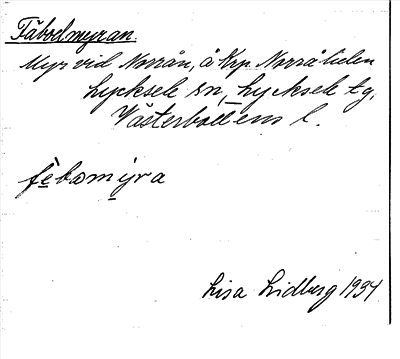 Fäbodmyran.
Myr vid Norrån, å Krp. Norråliden
Lycksele sn, Lycksele tg,
Västerbottens l.
fèbomy̱ra
Lisa Lidberg 1934